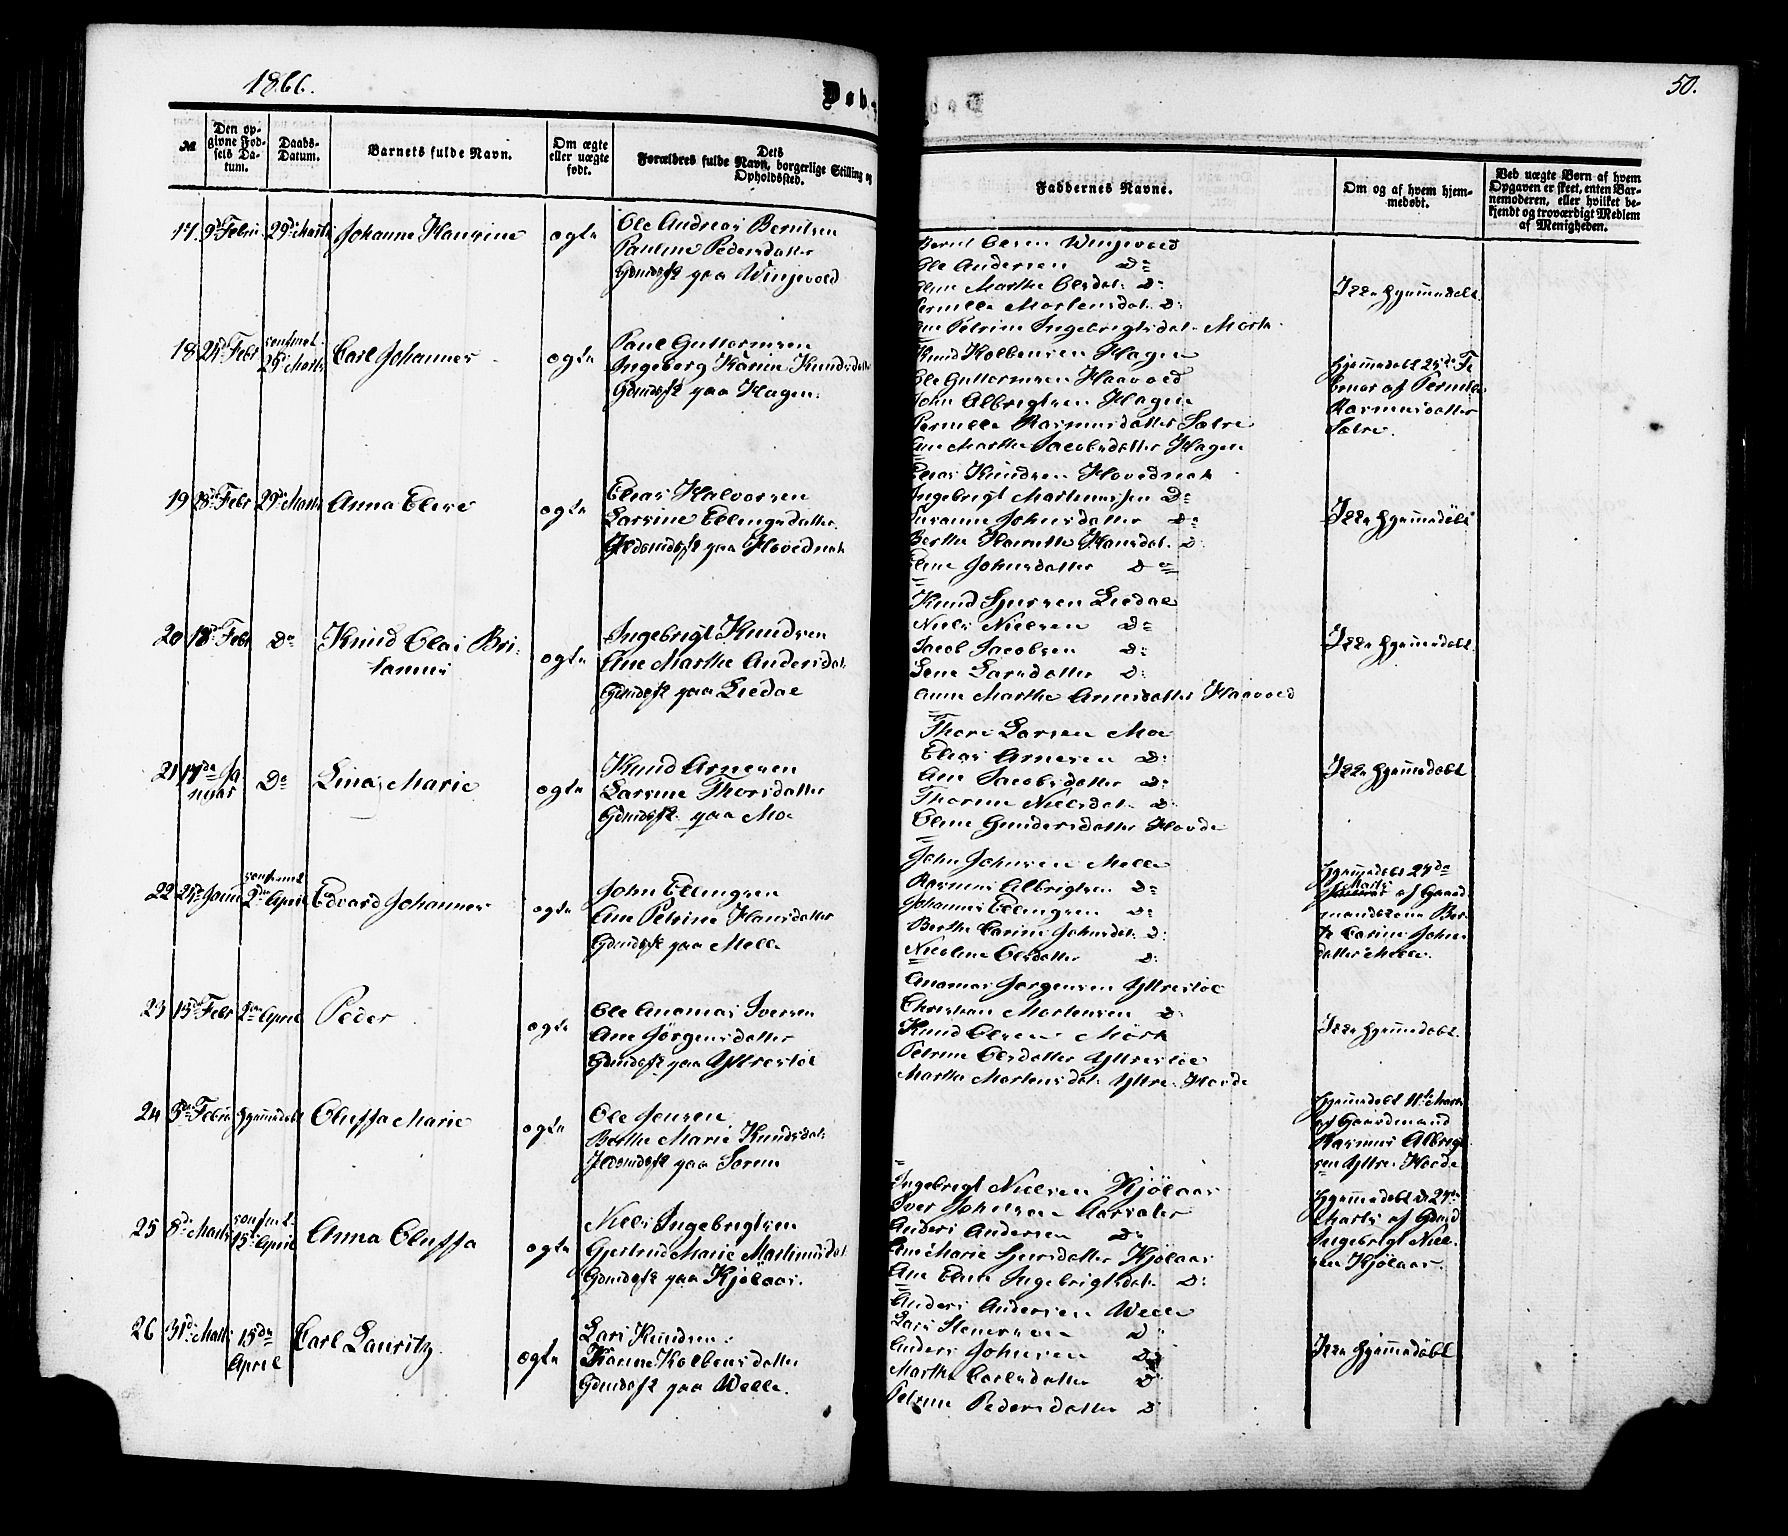 1866.
Døb
50.
№
Den opgivne Fødsels Datum.
Daabs-Datum.
Barnets fulde Navn.
Om ægte eller uægte født.
Dets Forældres fulde Navn, borgerlige Stilling og Opholdssted.
Faddernes Navne.
Om og af hvem hjemmedøbt.
Ved uægte Børn af hvem Opgaven er skeet, enten Barnemoderen, eller hvilket bekjendt og troværdigt Medlem af Menigheden.
17 9de Febru. 29de Marts Johanne Hansine ægte
Ole Andreas Berntsen
Pauline Pedersdatter
Gdmdsfk paa Winjevold
Bernt Olsen Winjevold
Ole Andersen Do
Marthe Olsdat. Do
Pernille Mortensdat. Do
Ane Petrine Ingebrigtsdat. Mork
Ikke hjemmedøbt.
18 Febr confirmet Marts Carl Johannes ægte
Paul Guttormsen
Ingeborg Karine Knudsdatter
Gdmdsfk paa Hagen.
Knud Kolbensen Hagen
Ole Guttormsen Haavold
John Albrigtsen Hagen
Pernille Rasmusdatter Sætre
Ane Marthe Jacobsdatter Hagen
Hjemmedøbt 25de Februar af Pernille
Rasmusdatter
Sætre.
19 18de Febr 29de Marts Anna Elise ægte
Elias Halvorsen
Larsine Ellingsdatter.
Gdmdsfk paa Hovednak
Elias Knudsen Hovednak
Ingebrigt Martinussen Do
Susanne Johnsdatter Do
Berthe Hansdat. Do
Eline Johnsdatter Do
Ikke hjemmedøbt
20 18de Febr Do Knud Olai Britannus ægte
Ingebrigt Knudsen
Ane Marthe Andersdat.
Gdmdsfk paa Liedal
Knud Sjursen Liedal
Niels Nielsen Do
Jacob Jacobsen Do
Lene Larsdatter Do
Anne Marthe Arnesdatter Haavold
Ikke hjemmedøbt.
21 17de Januar Do Lina Marie ægte
Knud Arnesen
Larsine Thoresdatter
Gdmdsfk. paa Mo
Thore Larsen Mo
Elias Arnesen Do
Ane Jacobsdatter Do
Thorine Nielsdat. Do
Eline Gundersdatter Hovde
Ikke hjemmedøbt
22 confirmet 2den April Edvard Johannes ægte
John Ellingsen
Ane Petrine Hansdatter
Gdmdsfk paa Melle
John Johnsen Melle
Rasmus Albrigtsen Do
Johannes Ellingsen Do
Berthe Carine Johnsdat. Do
Nicoline Olsdatter Do
Hjemmedøbt 27de
Marts af Gaardmandskone Berthe Carine Johnsdatter Melle.
23 15de Febr 2den April Peder ægte
Ole Ananias Iversen
Ane Jörgensdatter
Gdmdsfk paa Yttrestøl
Ananias Jørgensen Yttrestøl
Christian Mortensen Do
Knud Olsen Mörk
Petrine Olsdatter Yttrestøl
Marthe Mortensdat. Yttre Hovde
Ikke hjemmedøbt.
24 5te Febru hjemmedøbt Oluffa Marie ægte
Ole Jensen
Berthe Marie Knudsdat.
paa
Hjemmedøbt 11te Marts
af Gaardmand
Rasmus Albrigtsen Yttre Hovde
25 8de Marts confmet 15de April Anna Oluffa ægte
Niels Ingebrigtsen
Gjertrud Marie Martinusdat.
Gdmdsfk paa Kjölaas.
Ingebrigt Nielsen Kjölaas
Iver Johnsen Aarsæter
Anders Andersen Do
Ane Marie Sjursdatter Kjölaas
Ane Eline Ingebrigtsdat. Do
Hjemmedøbt d 27de
Marts af Gdmd
Ingebrigt Nielsen Kjölaas.
26 31de Marts 15de April Carl Lauritz ægte
Lars Knudsen
Karine Kolbensdatter
Gdmdsfk paa Welle.
Anders Andersen Welle
Lars Stenersen Do
Anders Johnsen Do
Marthe Carlsdatter Do
Petrine Pedersdatter Do
Ikke hjemmedøbt